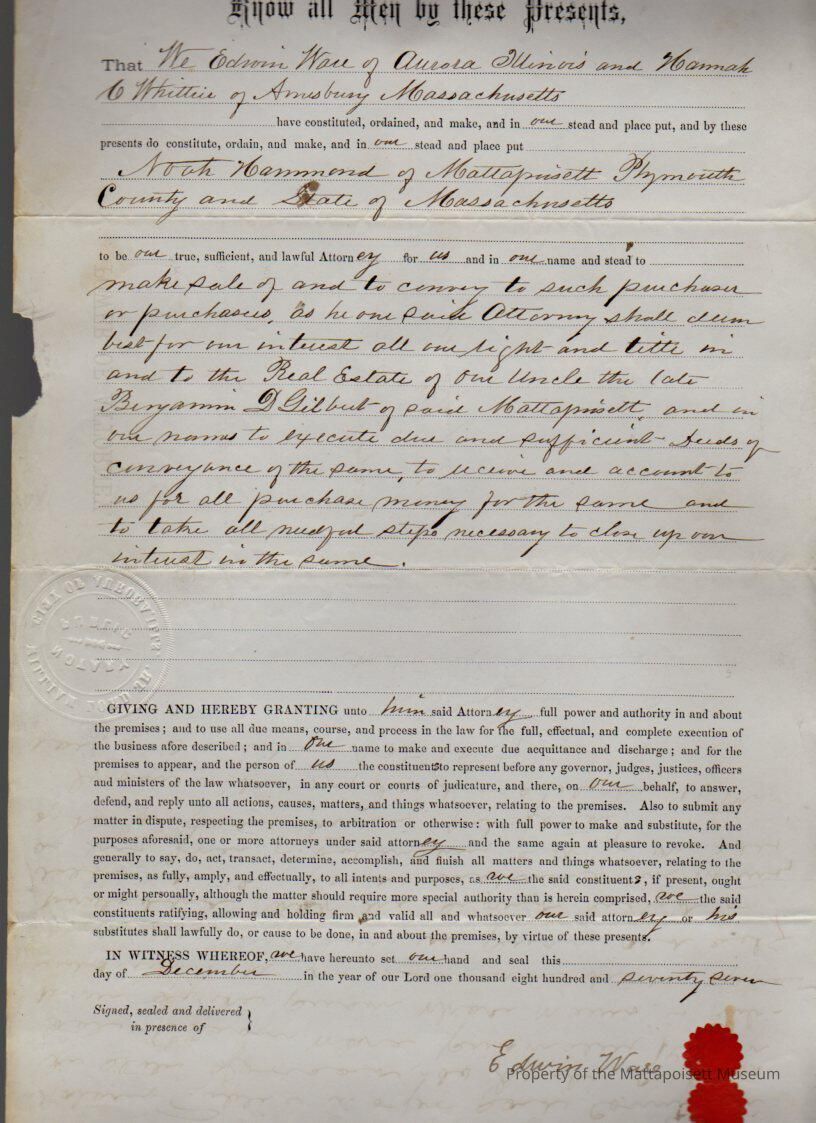 Know all Men by these Presents,
That We Edwin Ware of Aurora Illinois and Hannah
C Whittier of Amesbury Massachusetts
have constituted, ordained, and make, and in our stead and place put, and by these
presents do constitute, ordain, and make, and in our stead and place put
Noah Hammond of Mattapoisett Plymouth
County and State of Massachusetts
to be our true, sufficient, and lawful Attorney for us and in our name and stead to
make sale of and to convey to such purchaser
or purchasers, as he our said Attorney shall deem
best for our interest all our right and title in
and to the Real Estate of our Uncle the late
Benjamin D Gilbert of said Mattapoisett, and in
our names to execute due and sufficient Deeds of
conveyance of the same, to receive and account to
us for all purchase money for the same and
to take all needful steps necessary to close up our
interest in the same.
GIVING AND HEREBY GRANTING unto him said Attorney full power and authority in and about
the premises; and to use all due means, course, and process in the law for the full, effectual, and complete execution of
the business afore described; and in our name to make and execute due acquittance and discharge; and for the
premises to appear, and the person of us the constituents to represent before any governor, judges, justices, officers
and ministers of the law whatsoever, in any court or courts of judicature, and there, on our behalf, to answer,
defend, and reply unto all actions, causes, matters, and things whatsoever, relating to the premises. Also to submit any
matter in dispute, respecting the premises, to arbitration or otherwise: with full power to make and substitute, for the
purposes aforesaid, one or more attorneys under said attorney and the same again at pleasure to revoke. And
generally to say, do, act, transact, determine, accomplish, and finish all matters and things whatsoever, relating to the
premises, as fully, amply, and effectually, to all intents and purposes, as we the said constituents, if present, ought
or might personally, although the matter should require more special authority than is herein comprised, we the said
constituents ratifying, allowing and holding firm and valid all and whatsoever our said attorney or his
substitutes shall lawfully do, or cause to be done, in and about the premises, by virtue of these presents.
IN WITNESS WHEREOF, we have hereunto set our hand and seal this
day of December in the year of our Lord one thousand eight hundred and seventy seven
Signed, sealed and delivered
in presence of
Edwin Ware
Property of the Mattapoisett Museum